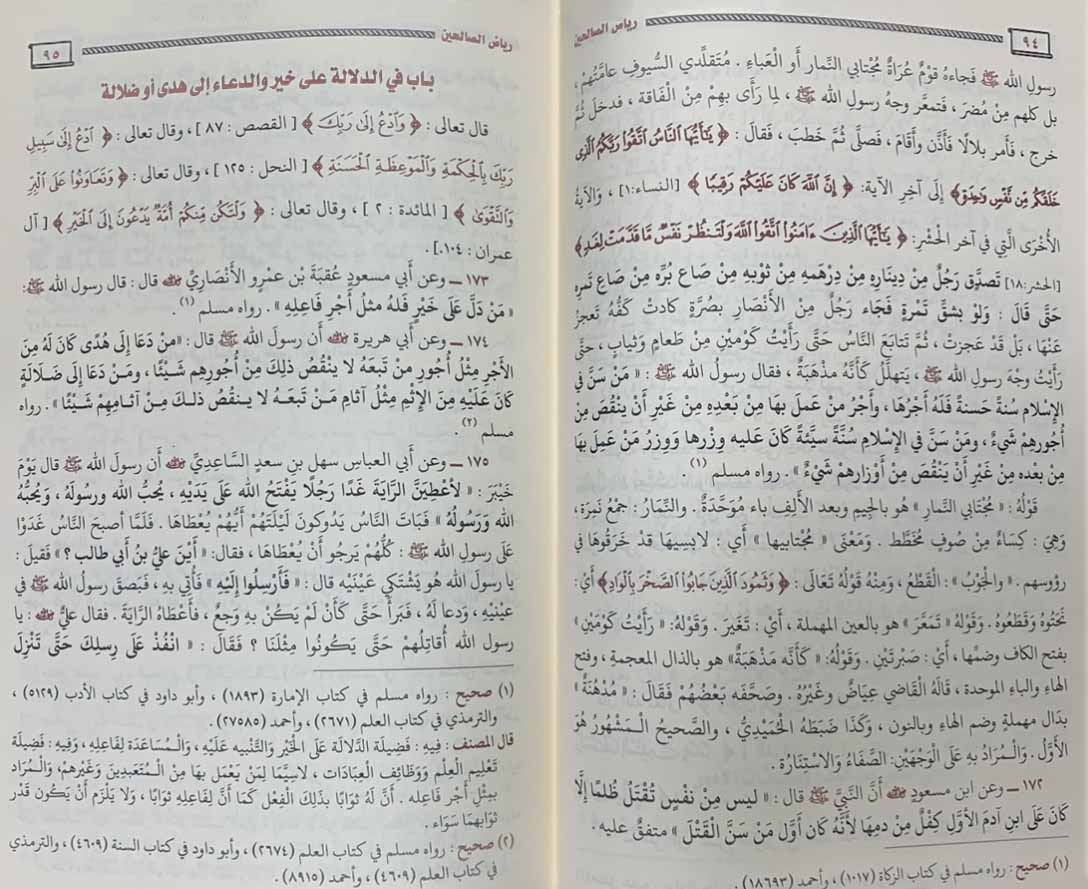 ٩٤
رياض الصالحين
رسولِ الله ﷺ فَجاءهُ قوْمٌ عُرَاةٌ مُجْتابي النِّمار أَو الْعَباءِ . مُتَقلِّدي السُّيوفِ عامَّتُهمْ،
بل كلهم مِنْ مُضرَ ، فَتمعَّر وجهُ رسولِ الله ﷺ ، لِما رَأَى بهِمْ مِنْ الْفَاقة ، فدخلَ ثُمَّ
خرج ، فَأَمر بلالًا فَأَذَّن وأَقَامَ ، فَصلَّى ثُمَّ خَطبَ ، فَقالَ : ﴿ يَٰٓأَيُّهَا ٱلنَّاسُ ٱتَّقُوا۟ رَبَّكُمُ ٱلَّذِى
خَلَقَكُم مِّن نَّفْسٍ وَٰحِدَةٍ﴾ إِلَى آخِرِ الآية: ﴿ إِنَّ ٱللَّهَ كَانَ عَلَيْكُمْ رَقِيبًا ﴾ [النساء:١] ، وَالآيةُ
الأُخْرَى الَّتِي فِي آخر الْحَشْرِ: ﴿ يَٰٓأَيُّهَا ٱلَّذِينَ ءَامَنُوا۟ ٱتَّقُوا۟ ٱللَّهَ وَلْتَنظُرْ نَفْسٌ مَّا قَدَّمَتْ لِغَدٍ﴾
[الحشر:١٨] تَصدَّق رَجُلٌ مِنْ دِينَارِهِ مِنْ دِرْهَمِهِ مِنْ ثوْبِهِ مِنْ صَاعِ بُرِّه مِنْ صَاعِ تَمرِه
حَتَّى قَالَ : وَلوْ بِشقِّ تَمْرةٍ فَجَاء رَجُلٌ مِنْ الأَنْصَارِ بِصُرَّةٍ كادتْ كَفُّهُ تَعجزُ
عَنْهَا، بَلْ قَدْ عَجزتْ ، ثُمَّ تَتابَعَ النَّاسُ حَتَّى رَأَيْتُ كَوْمَيْنِ مِنْ طَعامٍ وَثيابٍ ، حتَّى
رَأَيْتُ وجْهَ رسولِ الله ﷺ ، يَتهلَّلُ كَأَنَّهُ مذْهَبَةٌ ، فقال رسولُ الله ﷺ : « مَنْ سَنَّ في
الإِسْلام سُنةً حَسنةً فَلَهُ أَجْرُهَا، وأَجْرُ منْ عَملَ بِهَا مِنْ بَعْدِهِ مِنْ غَيْرِ أَنْ ينْقُصَ مِنْ
أُجُورِهِمْ شَيءٌ ، ومَنْ سَنَّ فِي الإِسْلامِ سُنَّةً سيِّئةً كَانَ عَليه وِزْرها وَوِزرُ مَنْ عَمِلَ بِهَا
مِنْ بعده مِنْ غَيْرِ أَنْ يَنْقُصَ مِنْ أَوْزارهمْ شَيْءٌ » . رواه مسلم (١).
قَوْلُهُ : « مُجْتَابي النِّمارِ » هو بالجِيم وبعد الأَلِفِ باء مُوَحَّدَةٌ . والنِّمَارُ : جمْعُ نَمِرَة،
وَهِيَ : كِسَاءٌ مِنْ صُوفٍ مُخَطَّط . وَمَعْنَى « مُجْتابيها » أَي : لابِسِيهَا قدْ خَرَقُوهَا في
رؤوسهم . «والْجَوْبُ» : الْقَطْعُ ، وَمِنْهُ قَوْلُهُ تَعَالَى : ﴿ وَثَمُودَ ٱلَّذِينَ جَابُوا۟ ٱلصَّخْرَ بِٱلْوَادِ﴾ أَيْ:
نَحَتُوهُ وَقَطَعُوهُ . وَقَوْلهُ « تَمَعَّرَ » هو بالعين المهملة ، أَيْ : تَغَيرَ . وَقَوْلهُ: « رَأَيْتُ كَوْمَيْنِ »
بفتح الكاف وضمِّها، أَيْ : صَبْرتَيْنِ . وَقَوْلُهُ: « كَأَنَّه مَذْهَبَةٌ» هو بالذال المعجمةِ ، وفتح
الهاءِ والباءِ الموحدة ، قَالَهُ القَاضي عِيَاضٌ وغَيْرُهُ . وصَحَّفَه بَعْضُهُمْ فَقَالَ : « مُدْهُنَةٌ »
بِدَال مهملةٍ وضم الهاءِ وبالنون ، وَكَذَا ضَبَطَهُ الْحُمَيْدِيُّ ، والصَّحيحُ الْمَشْهُورُ هُوَ
الأَوَّلُ . وَالْمُرَادُ بِهِ عَلَى الْوَجْهَيْنِ: الصَّفَاءُ وَالاسْتِنَارُة .
١٧٢ – وعن ابن مسعودٍ رضي الله عنه أَنَّ النَّبِيَّ ﷺ قال : « ليس مِنْ نفْسٍ تُقْتَلُ ظُلمًا إِلَّا
كَانَ عَلَى ابنِ آدمَ الأوَّلِ كِفْلٌ مِنْ دمِهَا لأَنَّهُ كَان أَوَّل مَنْ سَنَّ الْقَتْلَ » متفقٌ عليه .
(١) صحيح : رواه مسلم في كتاب الزكاة (١٠١٧) ، وأحمد (١٨٦٩٣) .
رياض الصالحين
٩٥
باب في الدلالة على خير والدعاء إلى هدى أو ضلالة
قال تعالى : ﴿ وَٱدْعُ إِلَىٰ رَبِّكَ ﴾ [ القصص : ٨٧ ] ، وقال تعالى : ﴿ ٱدْعُ إِلَىٰ سَبِيلِ
رَبِّكَ بِٱلْحِكْمَةِ وَٱلْمَوْعِظَةِ ٱلْحَسَنَةِ ﴾ [ النحل : ١٢٥ ] ، وقال تعالى : ﴿ وَتَعَاوَنُوا۟ عَلَى ٱلْبِرِّ
وَٱلتَّقْوَىٰ ﴾ [ المائدة : ٢ ] ، وقال تعالى : ﴿ وَلْتَكُن مِّنكُمْ أُمَّةٌ يَدْعُونَ إِلَى ٱلْخَيْرِ ﴾ [ آل
عمران : ١٠٤] .
١٧٣ – وعن أَبِي مسعودٍ عُقبَةَ بْن عمْرٍو الأَنْصَارِيِّ رضي الله عنه قال : قال رسول الله ﷺ:
« مَنْ دَلَّ عَلَى خَيْرٍ فَلهُ مثلُ أَجْرِ فَاعِلِهِ » . رواه مسلم (١).
١٧٤ – وعن أَبي هريرة رضي الله عنه أَن رسول الله ﷺ قال : «منْ دَعَا إِلَى هُدًى كَانَ لَهُ مِنَ
الأَجْرِ مِثْلُ أُجُورِ منْ تَبَعَهُ لا ينْقُصُ ذلِكَ مِنْ أُجُورِهِم شَيْئًا ، ومَنْ دَعَا إِلَى ضَلَالَةٍ
كَانَ عَلَيْهِ مِنَ الإِثْمِ مِثْلُ آثَامِ مَنْ تَبِعَهُ لا ينقُصُ ذلكَ مِنْ آثَامِهِمْ شَيْئًا » . رواه
مسلم (٢).
١٧٥ – وعن أَبي العباسِ سهل بنِ سعدٍ السَّاعِدِيِّ رضي الله عنه أَن رسولَ الله ﷺ قال يَوْمَ
خَيْبَرَ : « لأعْطِيَنَّ الرَّايَةَ غَدًا رَجُلًا يَفْتَحُ الله عَلَى يَدَيْهِ ، يُحبُّ الله ورسُولَهُ ، وَيُحبُّهُ
الله وَرَسُولُهُ » فَبَاتَ النَّاسُ يَدُوكونَ لَيْلَتَهُمْ أَيُّهُمْ يُعْطَاهَا . فَلَمَّا أصبحَ النَّاسُ غَدَوْا
عَلَى رسولِ الله ﷺ : كُلُّهُمْ يَرجُو أَنْ يُعْطَاهَا ، فقال: « أَيْنَ عليُّ بنُ أَبي طالب ؟ » فَقيلَ :
يا رسولَ الله هُو يَشْتَكي عَيْنَيْه قال : « فَأَرْسِلُوا إِلَيْهِ » فَأُتِي بِهِ ، فَبَصَقَ رسولُ الله ﷺ في
عيْنيْهِ ، وَدعا لَهُ ، فَبَرأَ حَتَّى كَأَنْ لَمْ يَكُنْ بِهِ وَجعٌ ، فأَعْطَاهُ الرَّايَةَ . فقال عليٌّ رضي الله عنه : يا
رسول الله أُقاتِلُهمْ حَتَّى يَكُونُوا مِثْلَنَا ؟ فَقَالَ : « انْفُذْ عَلَى رِسلِكَ حَتَّى تَنْزِلَ
(١) صحيح : رواه مسلم في كتاب الإمارة (١٨٩٣) ، وأبو داود في كتاب الأدب (٥١٢٩) ،
والترمذي في كتاب العلم (٢٦٧١) ، وأحمد (٢٧٥٨٥) .
قال المصنف : فِيهِ : فَضِيلَة الدَّلالَة عَلَى الْخَيْر وَالتَّنْبِيه عَلَيْهِ، وَالْمُسَاعَدَة لِفَاعِلِهِ ، وَفِيهِ : فَضِيلَة
تَعْلِيم الْعِلْم وَوَظَائِف الْعِبَادَات ، لاسِيَّمَا لِمَنْ يَعْمَل بِهَا مِنْ الْمُتَعَبِّدِينَ وَغَيْرهمْ، وَالْمُرَاد
بِمِثْلِ أَجْر فَاعِله . أَنَّ لَهُ ثَوَابًا بِذَلِكَ الْفِعْل كَمَا أَنَّ لِفَاعِلِهِ ثَوَابًا ، وَلا يَلْزَم أَنْ يَكُون قَدْر
ثَوَابهمَا سَوَاء .
(٢) صحيح : رواه مسلم في كتاب العلم (٢٦٧٤) ، وأبو داود في كتاب السنة (٤٦٠٩) ، والترمذي
في كتاب العلم (٤٦٠٩) ، وأحمد (٨٩١٥) .